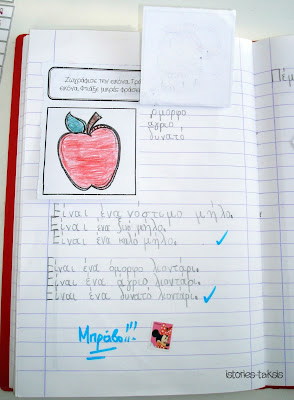 Ζωγράφισε την εικόνα. Γρά
εικόνα. Φτιάξε μικρές φράσε
όμορφο
άγριο
δυνατό
Πέμ
Είναι ένα νόστιμο μήλο.
Είναι ένα ξινό μήλο.
Είναι ένα καλό μήλο.
Είναι ένα όμορφο λιοντάρι.
Είναι ένα άγριο λιοντάρι.
Είναι ένα δυνατό λιοντάρι.
Μπράβο!!!
istories-taksis